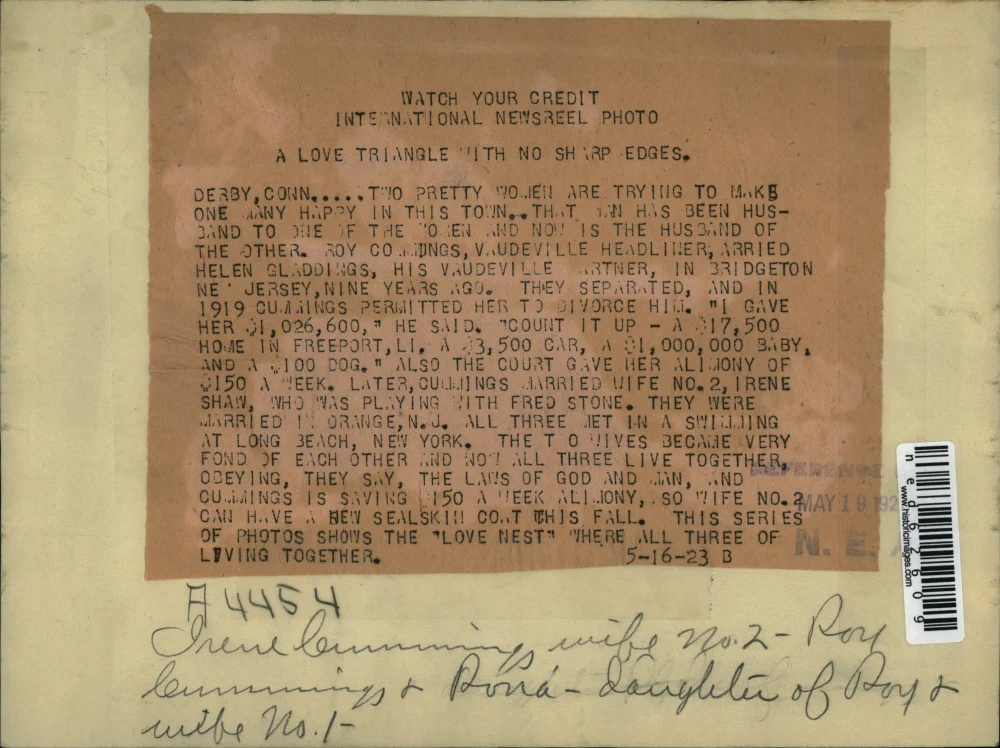 WATCH YOUR CREDIT
INTERNATIONAL NEWSREEL PHOTO
A LOVE TRIANGLE WITH NO SHARP EDGES.
DERBY, CONN.....TWO PRETTY WOMEN ARE TRYING TO MAKE
ONE MANY HAPPY IN THIS TOWN..THAT MAN HAS BEEN HUS-
BAND TO ONE OF THE WOMEN AND NOW IS THE HUSBAND OF
THE OTHER. ROY COMMINGS, VAUDEVILLE HEADLINER, MARRIED
HELEN GLADDINGS, HIS VAUDEVILLE PARTNER, IN BRIDGETON
NEW JERSEY, NINE YEARS AGO. THEY SEPARATED, AND IN
1919 CUMMINGS PERMITTED HER TO DIVORCE HIM. "I GAVE
HER $1,026,600," HE SAID. "COUNT IT UP - A $17,500
HOME IN FREEPORT, LI. A $3,500 CAR, A $1,000,000 BABY,
AND A $100 DOG." ALSO THE COURT GAVE HER ALIMONY OF
$150 A WEEK. LATER, CUMMINGS MARRIED WIFE NO.2, IRENE
SHAW, WHO WAS PLAYING WITH FRED STONE. THEY WERE
MARRIED IN ORANGE, N.J. ALL THREE MET IN A SWIMMING
AT LONG BEACH, NEW YORK. THE TWO WIVES BECAME VERY
FOND OF EACH OTHER AND NOW ALL THREE LIVE TOGETHER,
OBEYING, THEY SAY, THE LAWS OF GOD AND MAN, AND
CUMMINGS IS SAVING $150 A WEEK ALIMONY, SO WIFE NO.2
CAN HAVE A NEW SEALSKIN COAT THIS FALL. THIS SERIES
OF PHOTOS SHOWS THE "LOVE NEST" WHERE ALL THREE OF
LIVING TOGETHER. 5-16-23 B
REFERENCE
MAY 19 192
N. E. A
A4454
Irene Cummings, wife No. 2 - Roy
Cummings & - daughter of Roy &
wife No. 1 -
ned62609
www.historicimages.com